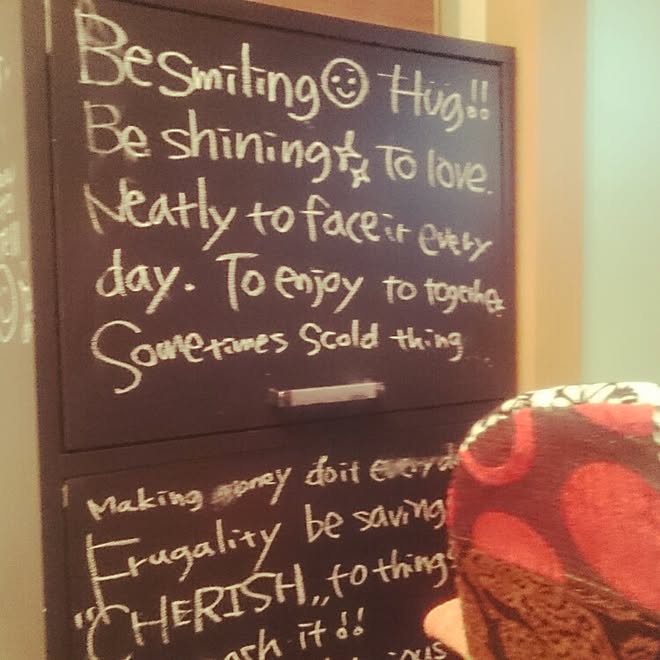 Be smiling Hug!!
Be shining☆☆ To love.
Neatly to face it every
day. To enjoy to together
Sometimes Scold thing
Making money do it everyd
Frugality be saving
"CHERISH„ to thing
it!!